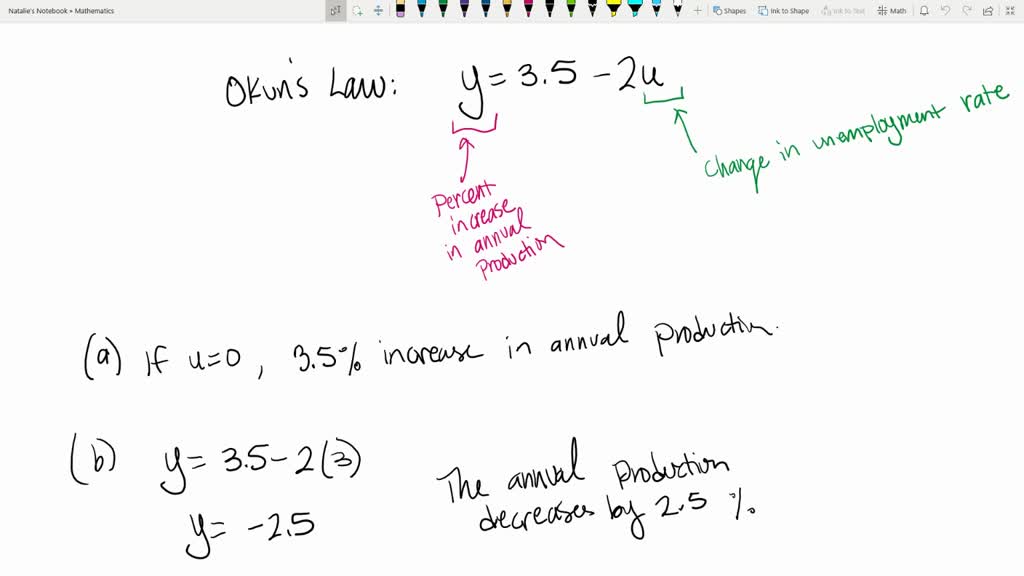 Natalie's Notebook > Mathematics
Shapes Ink to Shape Ink to Text Math
Okun's Law: y = 3.5 - 2u
change in unemployment rate
Percent
increase
in annual
production
(a) If u=0, 3.5% increase in annual production.
(b) y = 3.5 - 2(3)
y = -2.5
The annual production
decreases by 2.5 %.